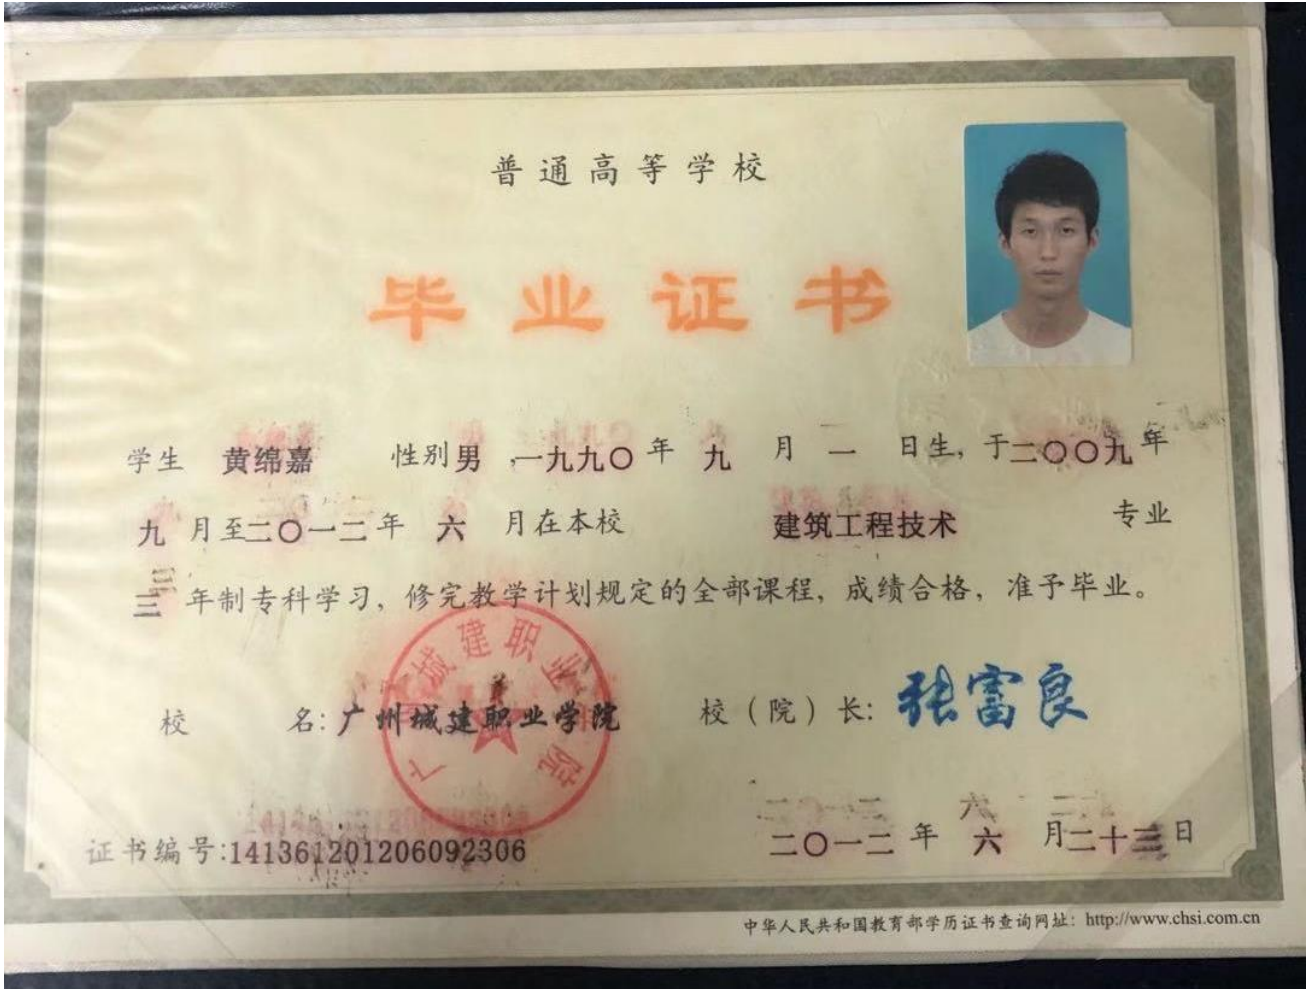 普通高等学校
毕业证书
学生 黄绵嘉 性别男,一九九〇年 九 月 一 日生,于二〇〇九年
九 月至二〇一二年 六 月在本校 建筑工程技术 专业
三 年制专科学习,修完教学计划规定的全部课程,成绩合格,准予毕业。
广州城建职业学院
校 名:广州城建职业学院 校(院)长:张富良
证书编号:141361201206092306 二〇一二年 六 月二十三日
中华人民共和国教育部学历证书查询网址:http://www.chsi.com.cn